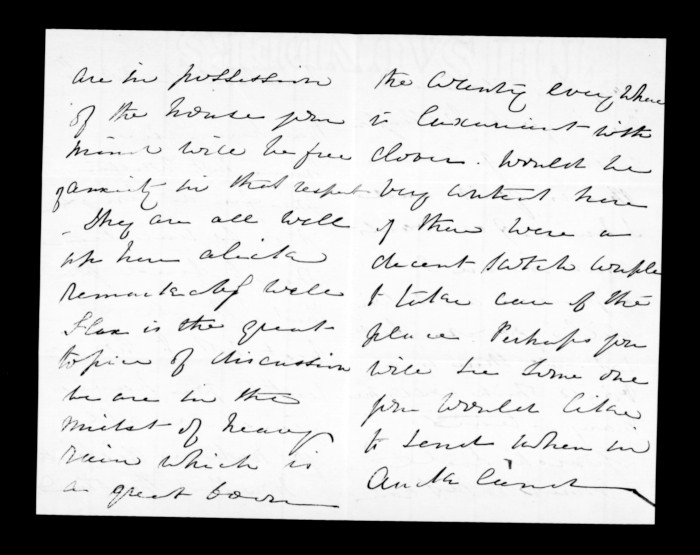 are in possession
of the house your
mind will be free
of anxiety in that respect
- They are all well
up here alick
remarkably well
Flax is the great
topic of discussion
we are in the
midst of heavy
rain which is
a great boon
the country every where
is luxuriant with
clover. Would be
very content here
if there were a
decent Scotch couple
to take care of the
place. Perhaps you
will see some one
you would like
to send when in
Auckland